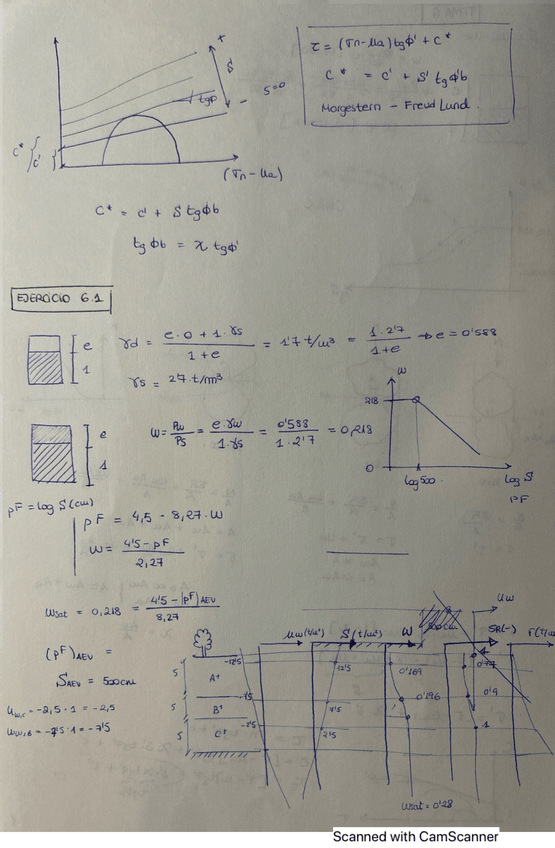 τ = (σn-ua) tgφ' + c*
c* = c' + S' tgφ'b
Morgestern - Freud Lund.
S
tgφ
S=0
c*
c'
(σn-ua)
c* = c' + S tgφb
tgφb = χ tgφ'
EJERCICIO 6.1
e
1
γd = e·0 + 1·γs / 1+e = 1'7 t/m³ = 1·2'7 / 1+e → e = 0'588
γs = 27 t/m³
e
1
W = Pw/Ps = e·γw / 1·γs = 0'588 / 1·2'7 = 0,218
W
218
0
log500
log S
PF
pF = log S(cm)
pF = 4,5 - 8,27·W
W = 4'5-pF / 2,27
Wsat = 0,218 = 4'5-(pF)AEV / 8,27
(pF)AEV =
SAEV = 500cm
uw,c = -2,5·1 = -2,5
uw,B = -7'5·1 = -7'5
uw
uw(t/m²)
S(t/m²)
W
SR(-)
5
5
5
A+
B+
C+
-12'5
-7'5
12'5
7'5
2'5
0'169
0'196
0'9
1
Wsat = 0'28
Scanned with CamScanner